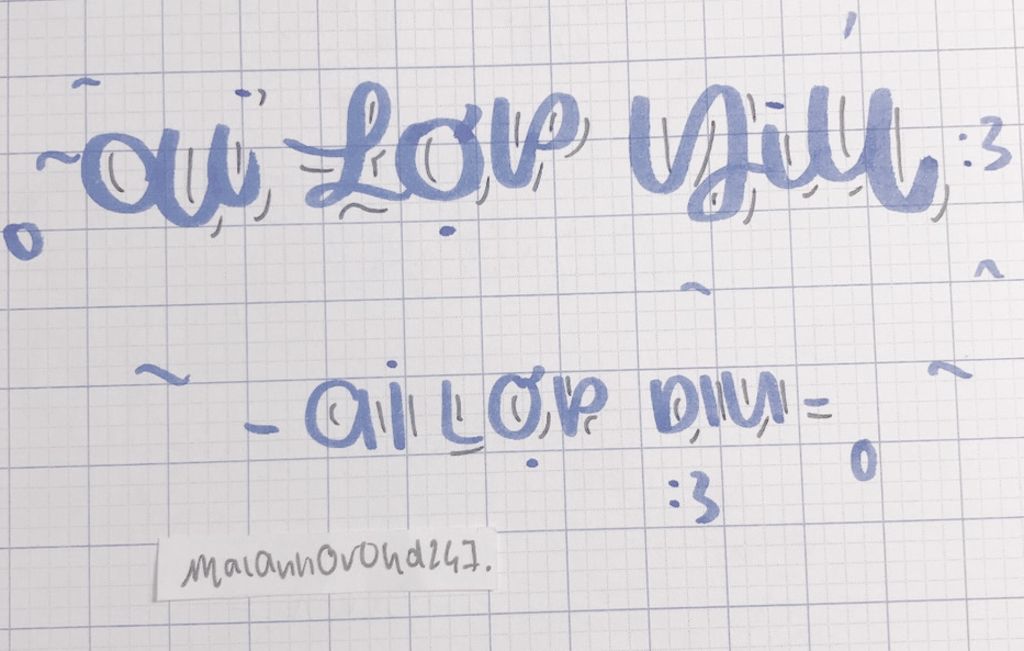 ~ai Lợp yiu :3
- ai Lợp Diu =
:3
maianhovohd247.